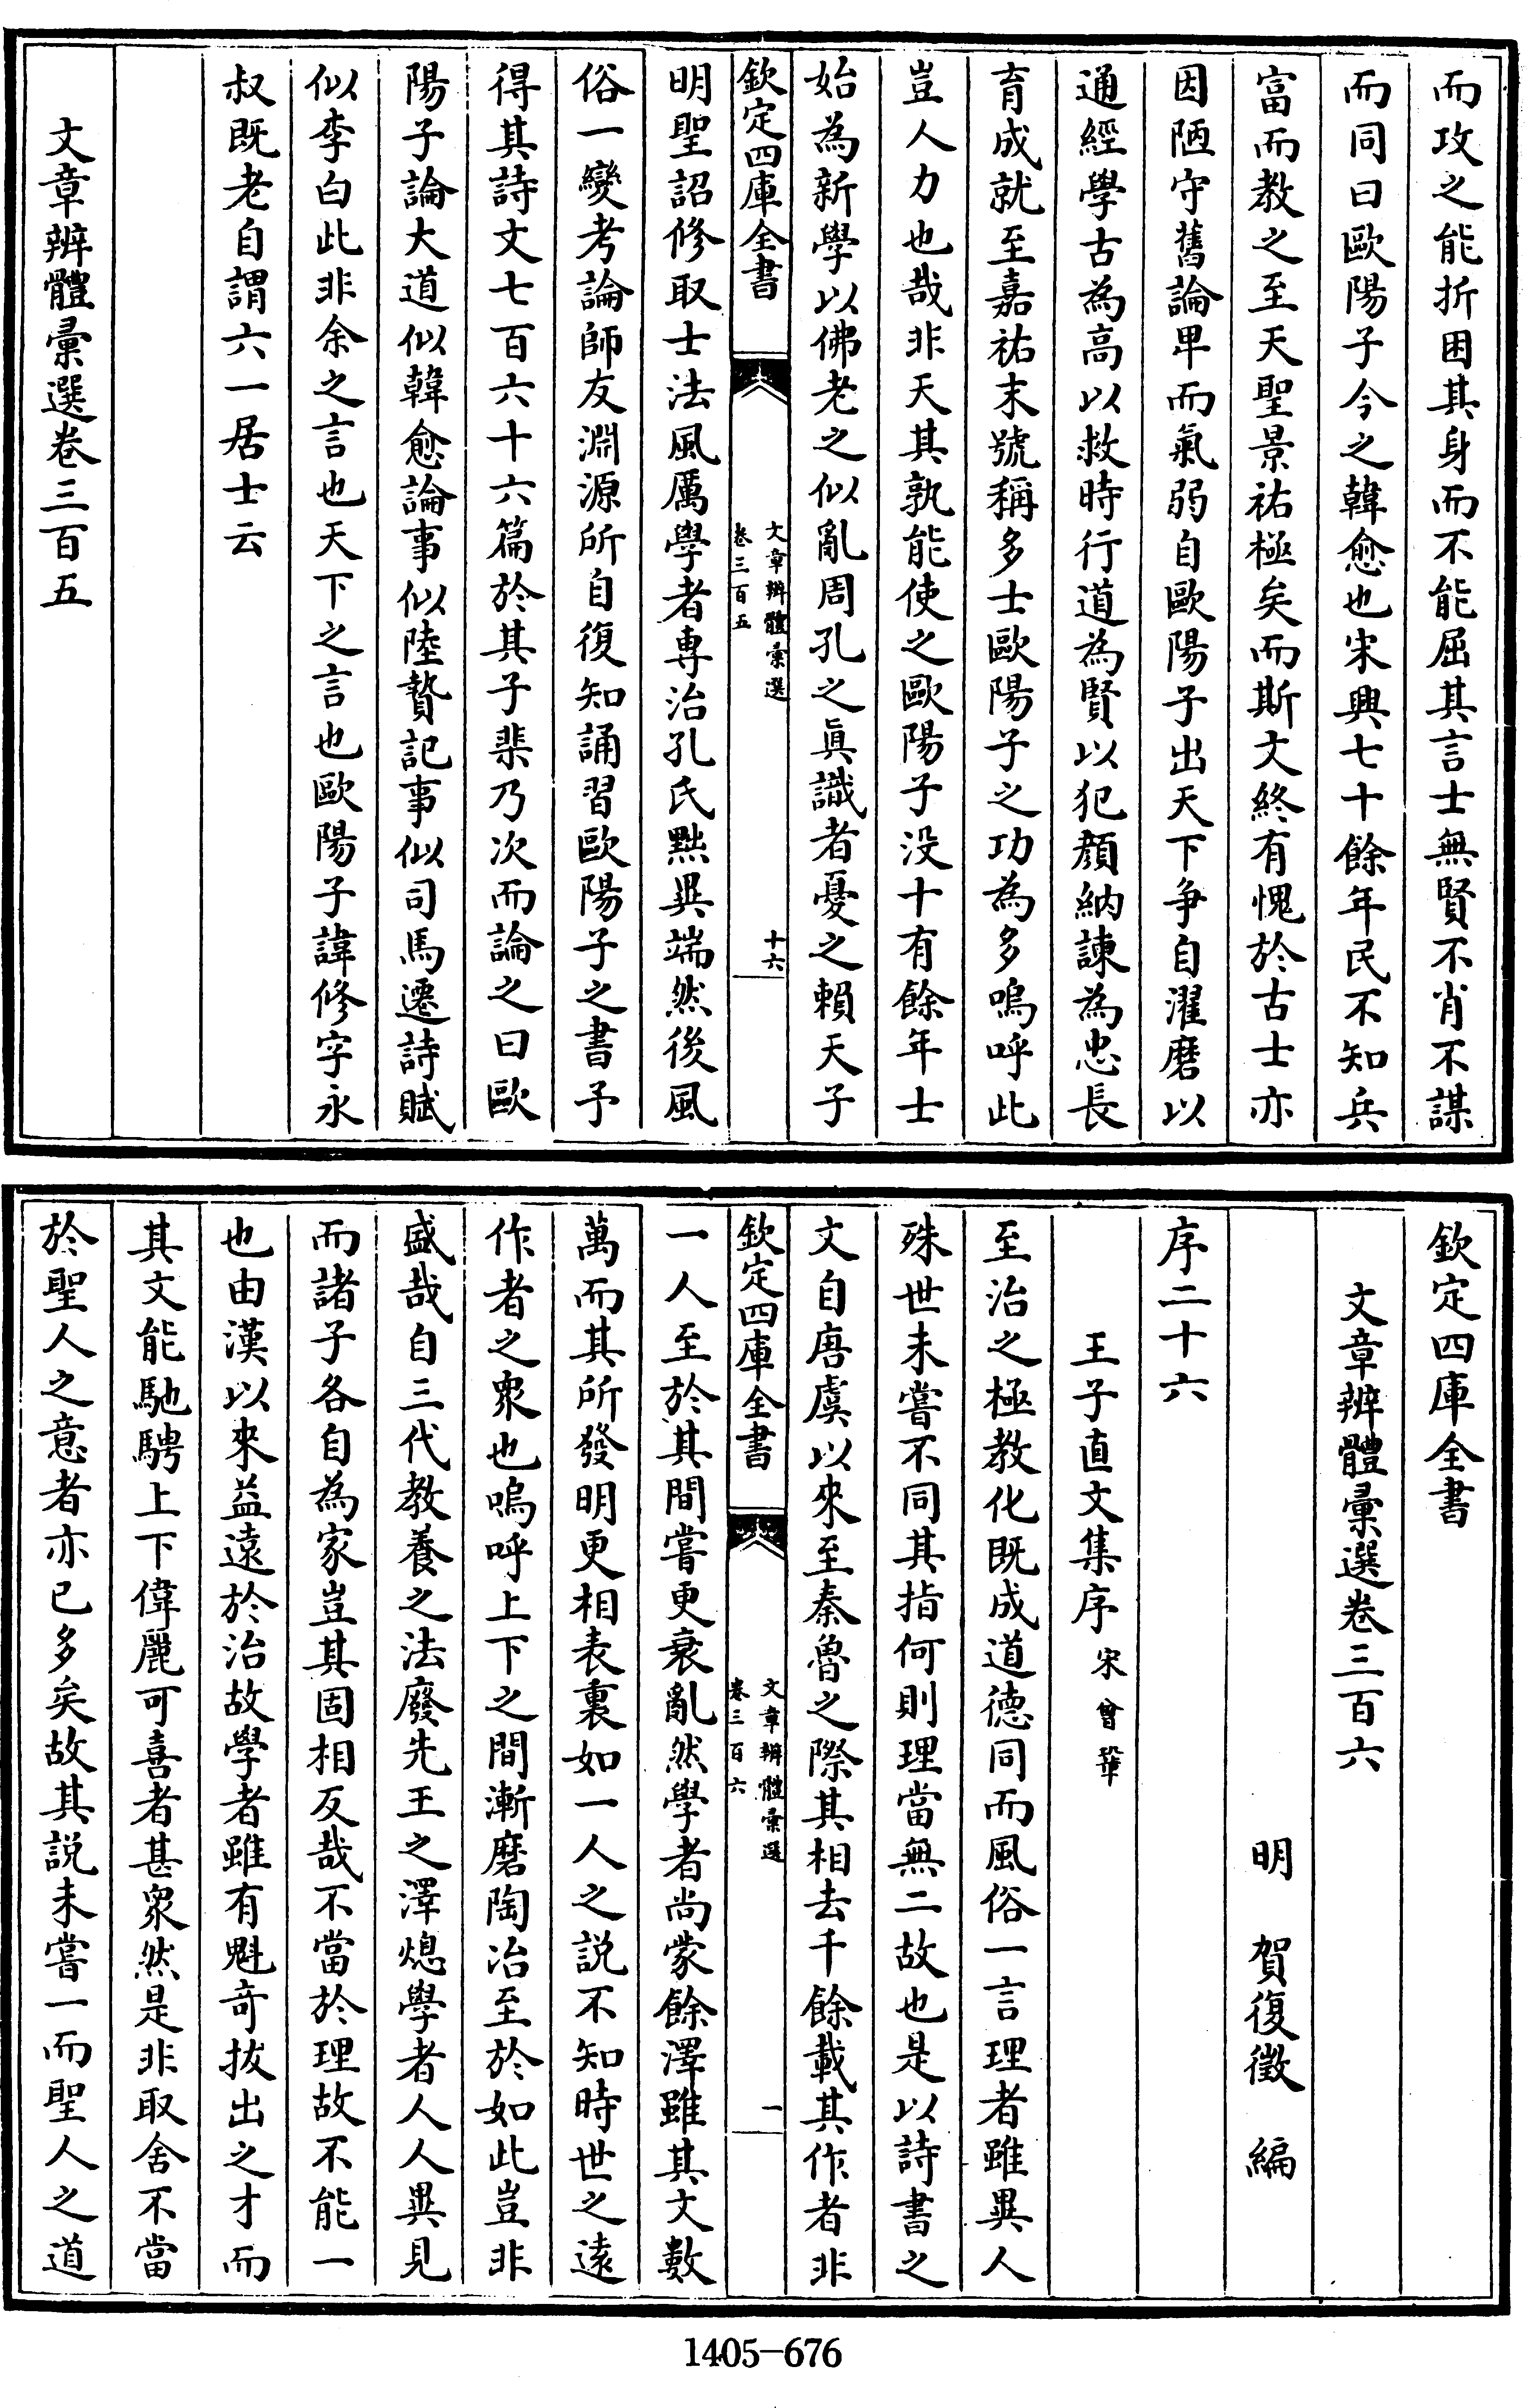 而攻之能折困其身而不能屈其言士無賢不肖不謀
而同曰歐陽子今之韓愈也宋興七十餘年民不知兵
富而教之至天聖景祐極矣而斯文終有愧於古士亦
因陋守舊論卑而氣弱自歐陽子出天下争自濯磨以
通經學古為高以救時行道為賢以犯顔納諫為忠長
育成就至嘉祐末號稱多士歐陽子之功為多嗚呼此
豈人力也哉非天其孰能使之歐陽子没十有餘年士
始為新學以佛老之似亂周孔之眞識者憂之賴天子
欽定四庫全書
文章辨體彙選
卷三百五
十六
明聖詔修取士法風厲學者專治孔氏黜異端然後風
俗一變考論師友淵源所自復知誦習歐陽子之書予
得其詩文七百六十六篇於其子棐乃次而論之曰歐
陽子論大道似韓愈論事似陸贄記事似司馬遷詩賦
似李白此非余之言也天下之言也歐陽子諱修字永
叔既老自謂六一居士云
文章辨體彙選卷三百五
欽定四庫全書
文章辨體彙選卷三百六
明 賀復徵 編
序二十六
王子直文集序 宋曾鞏
至治之極教化既成道德同而風俗一言理者雖異人
殊世未嘗不同其指何則理當無二故也是以詩書之
文自唐虞以來至秦魯之際其相去千餘載其作者非
欽定四庫全書
文章辨體彙選
卷三百六
一
一人至於其間嘗更衰亂然學者尚蒙餘澤雖其文數
萬而其所發明更相表裏如一人之説不知時世之遠
作者之衆也嗚呼上下之間漸磨陶冶至於如此豈非
盛哉自三代教養之法廢先王之澤熄學者人人異見
而諸子各自為家豈其固相反哉不當於理故不能一
也由漢以來益遠於治故學者雖有魁竒拔出之才而
其文能馳騁上下偉麗可喜者甚衆然是非取舍不當
於聖人之意者亦已多矣故其説未嘗一而聖人之道
1405-676